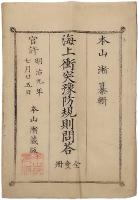 本山漸纂輯
海上衝突豫防規則問答
全壹冊
官許明治九年
七月廿五日
本山漸蔵版